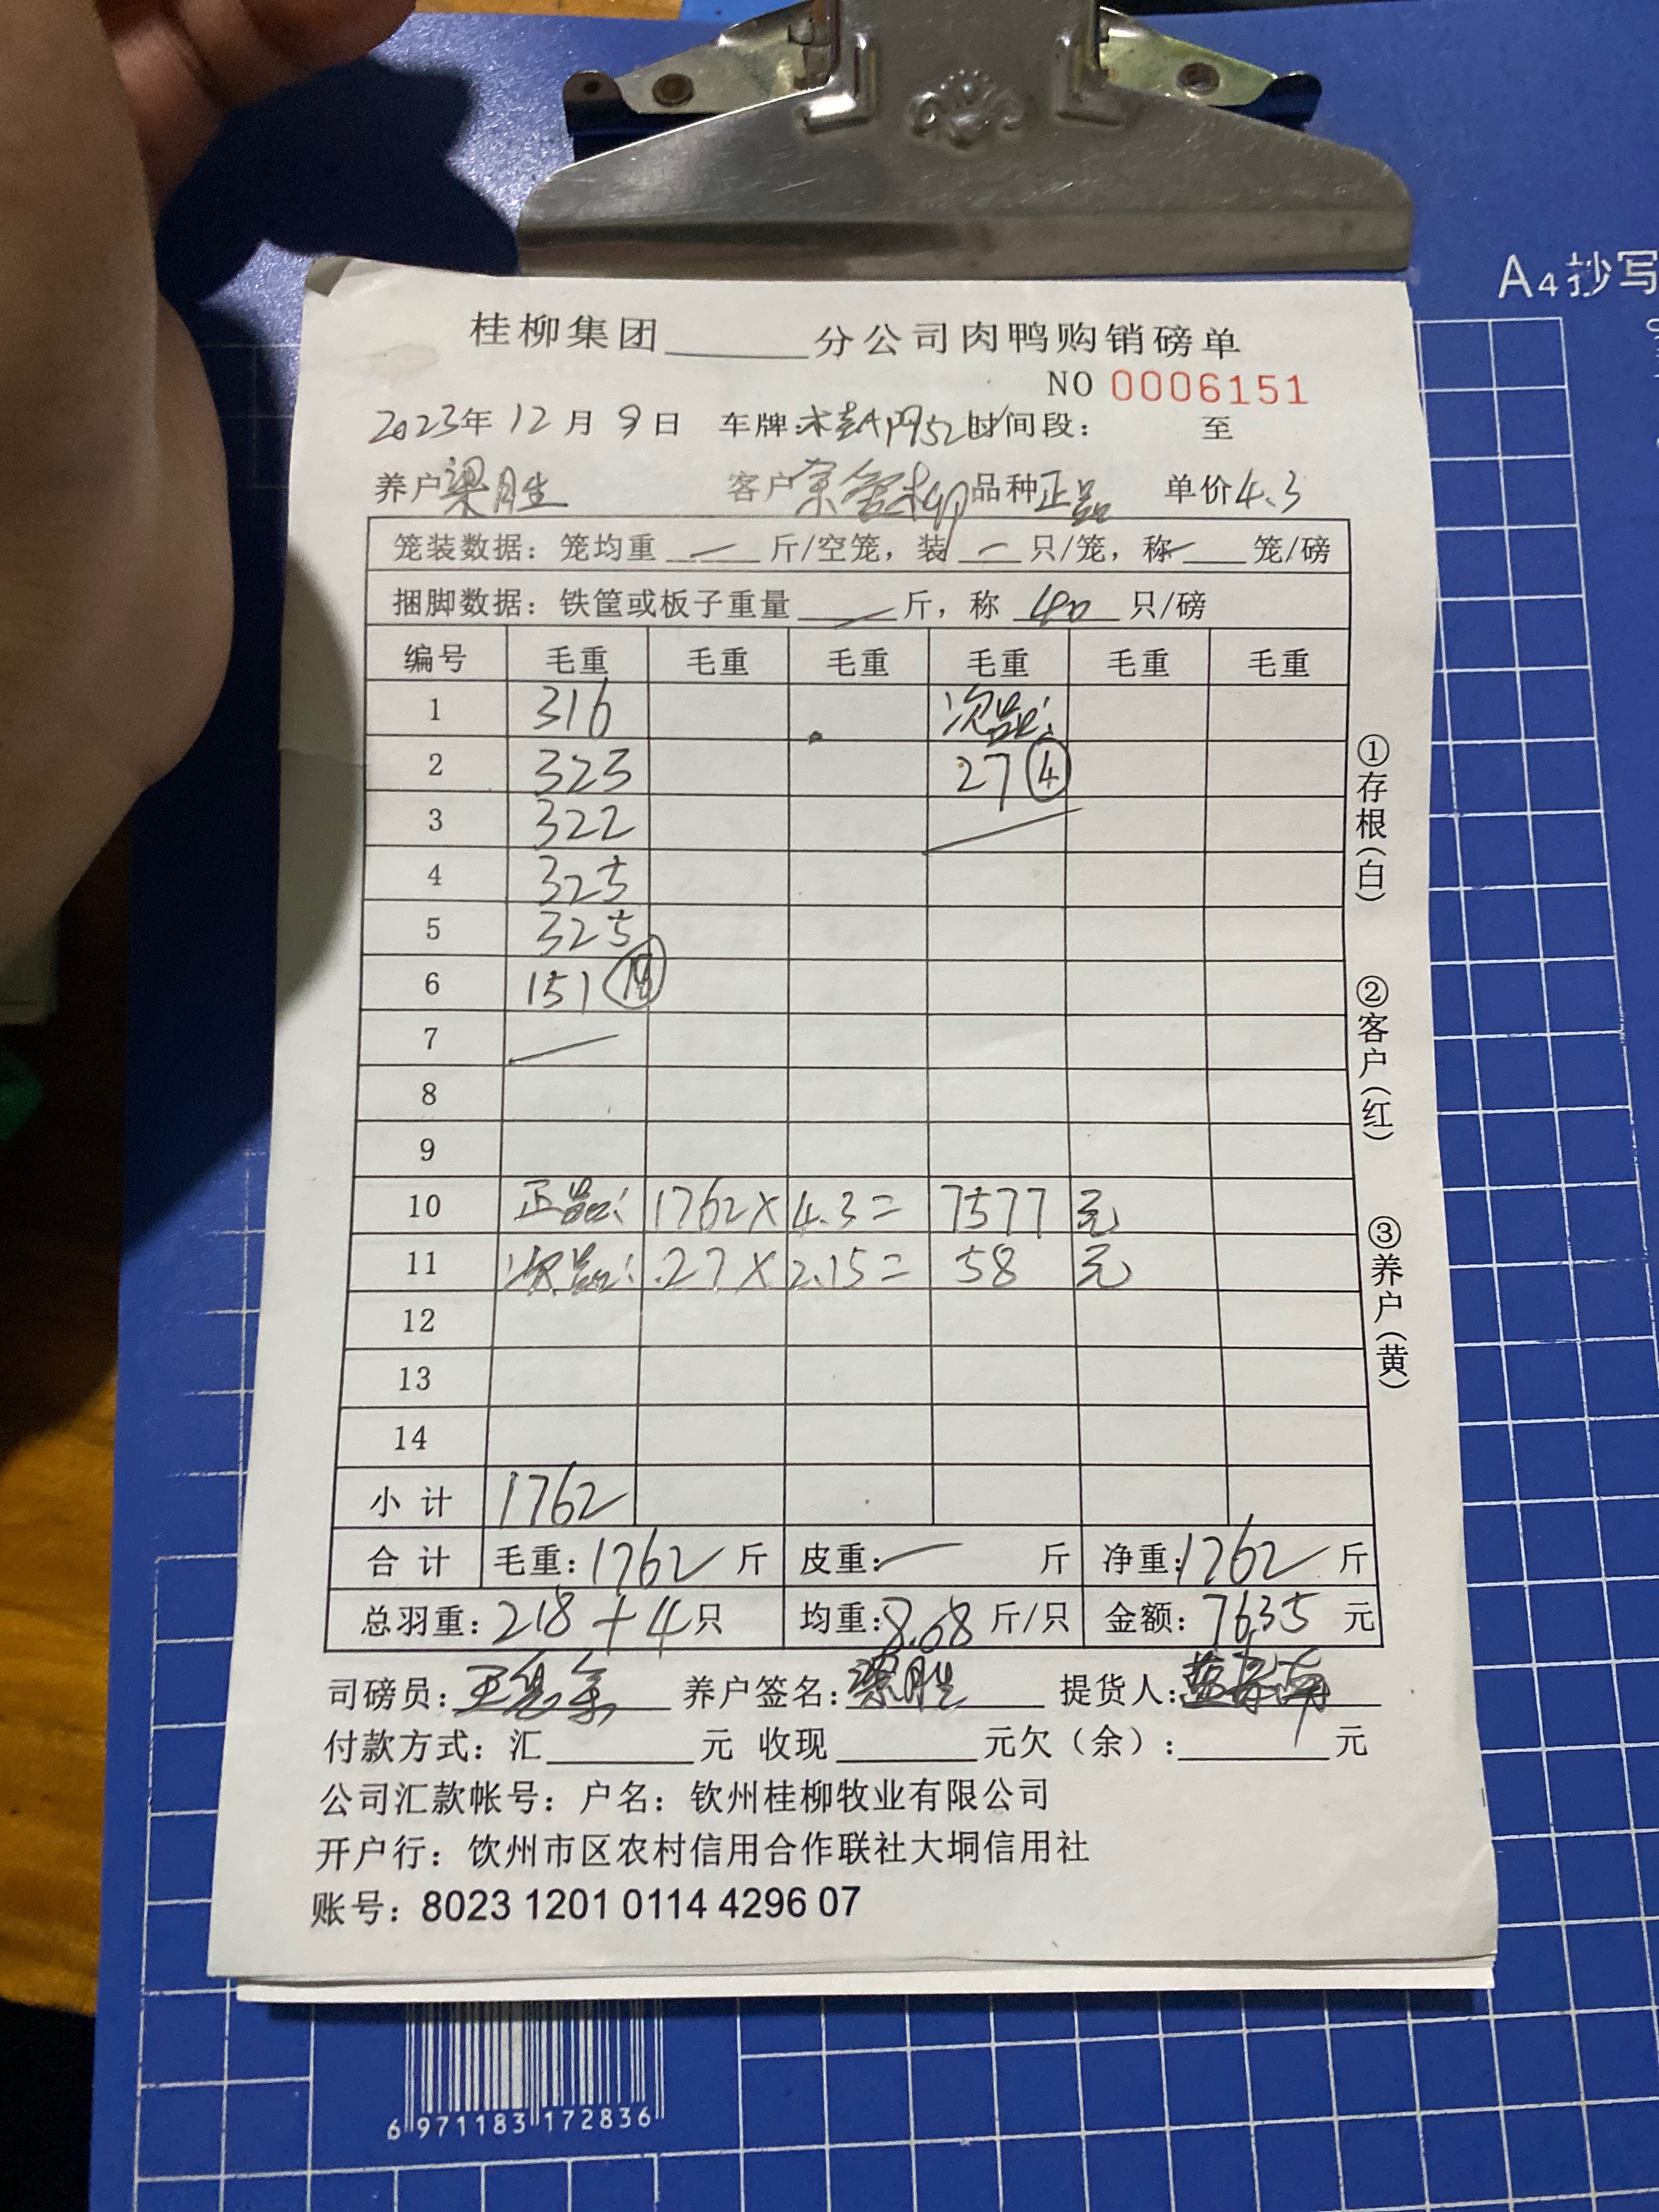 A4抄写
桂柳集团______分公司肉鸭购销磅单
NO 0006151
2023年 12月 9日 车牌: 时间段: 至
养户梁胜 客户 品种正品 单价4.3
笼装数据: 笼均重 — 斤/空笼, 装 — 只/笼, 称 — 笼/磅
捆脚数据: 铁筐或板子重量 — 斤, 称 40 只/磅
编号 毛重 毛重 毛重 毛重 毛重 毛重
1 316 次品:
2 323 27 ④
3 322 —
4 325
5 325
6 151 ⑱
7 —
8
9
10 正品: 1762× 4.3= 7577 元
11 次品: 27× 2.15= 58 元
12
13
14
小计 1762
合计 毛重: 1762 斤 皮重: — 斤 净重: 1762 斤
总羽重: 218+4只 均重: 8.08 斤/只 金额: 7635 元
司磅员: 养户签名: 梁胜 提货人:
付款方式: 汇______元 收现______元欠(余):______元
公司汇款帐号: 户名: 钦州桂柳牧业有限公司
开户行: 饮州市区农村信用合作联社大垌信用社
账号: 8023 1201 0114 4296 07
①存根(白)
②客户(红)
③养户(黄)
6 971183 172836